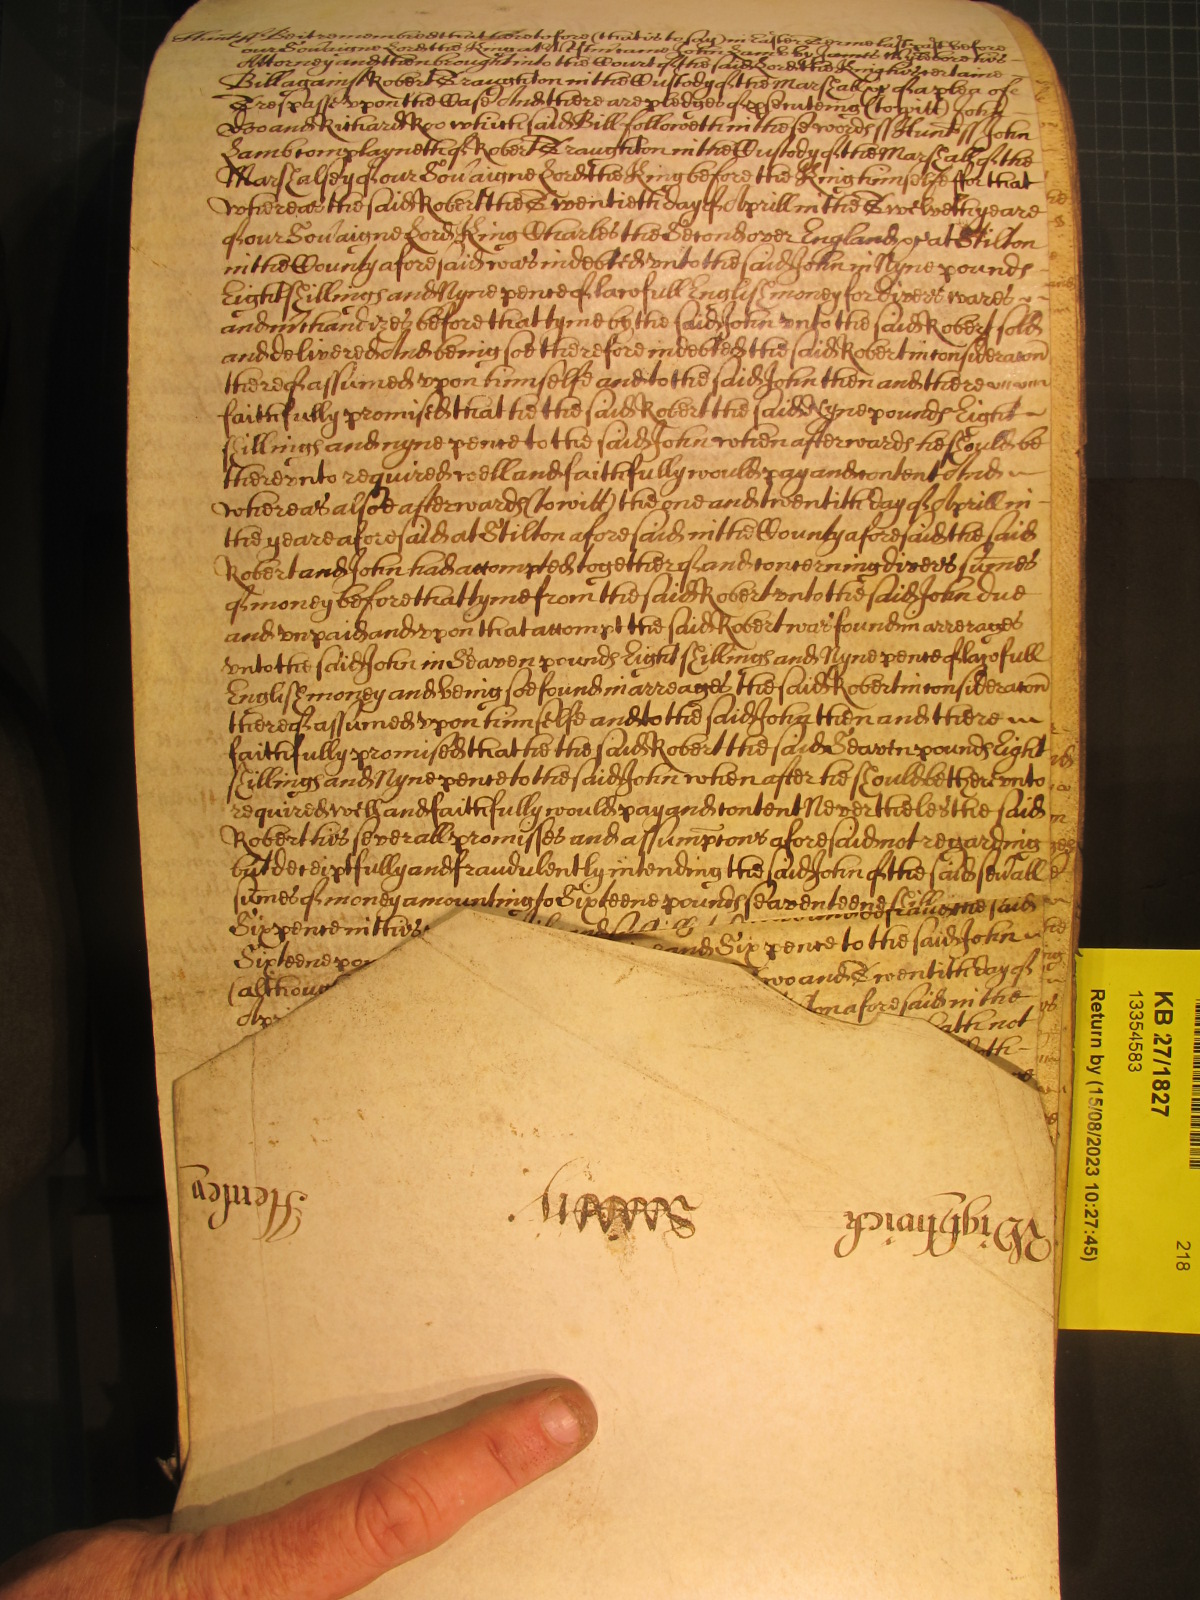 Hunt ss Be it remembred that heretofore (that is to say) in Easter Terme last past before
our Sov'aigne Lord the King at Westm' came John Lamb by James his
Attorney and then brought into the Court of the said Lord the King his certaine
Bill against Robert Traughton in the Custody of the Marshall &c of a plea of
Trespasse upon the Case And there are pledges of p'secuteing (to witt) John
Doo and Richard Roo which said Bill followeth in these words ss Hunt ss John
Lamb complayneth of Robert Traughton in the Custody of the Marshall of the
Marshalsey of our Sov'aigne Lord the King before the King himselfe ffor that
whereas the said Robert the Twentieth day of Aprill in the Twelweth yeare
of our Sov'aigne Lord King Charles the Second over England &c at Stilton
in the County aforesaid was indebted unto the said John in Nyne pounds
Eight shillings and Nyne pence of lawfull English money for divers wares
and m'chandizes before that tyme by the said John unto the said Robert sold
and delivered And being soe therefore indebted the said Robert in consideracon
thereof assumed upon himselfe and to the said John then and there
faithfully promised that he the said Robert the said Nyne pounds Eight
shillings and nyne pence to the said John when afterwards he should be
thereunto required well and faithfully would pay and content And
whereas alsoe afterwards (to witt) the one and twentith day of Aprill in
the yeare aforesaid at Stilton aforesaid in the County aforesaid the said
Robert and John had accompted together of and concerning divers sumes
of money before that tyme from the said Robert unto the said John due
and unpaid and upon that accompt the said Robert was found in arrerages
unto the said John in Seaven pounds Eight shillings and Nyne pence of lawfull
English money and being soe found in arreages the said Robert in consideracon
thereof assumed upon himselfe and to the said John then and there
faithfully promised that he the said Robert the said Seaven pounds Eight
shillings and Nyne pence to the said John when after he should be thereunto
required well and faithfully would pay and content Nevertheles the said
Robert his severall promisses and assumpcons aforesaid not regarding
but deceiptfully and fraudulently intending the said John of the said sev'all
sumes of money amounting to Sixteene pounds seaventeene shillings and
Six pence in this defraud the said
Sixteene and Six pence to the said John
(although two and Twentith day of
aforesaid in the
hath not
Wightwick
Henley
KB 27/1827
13354583
Return by (15/08/2023 10:27:45)
218